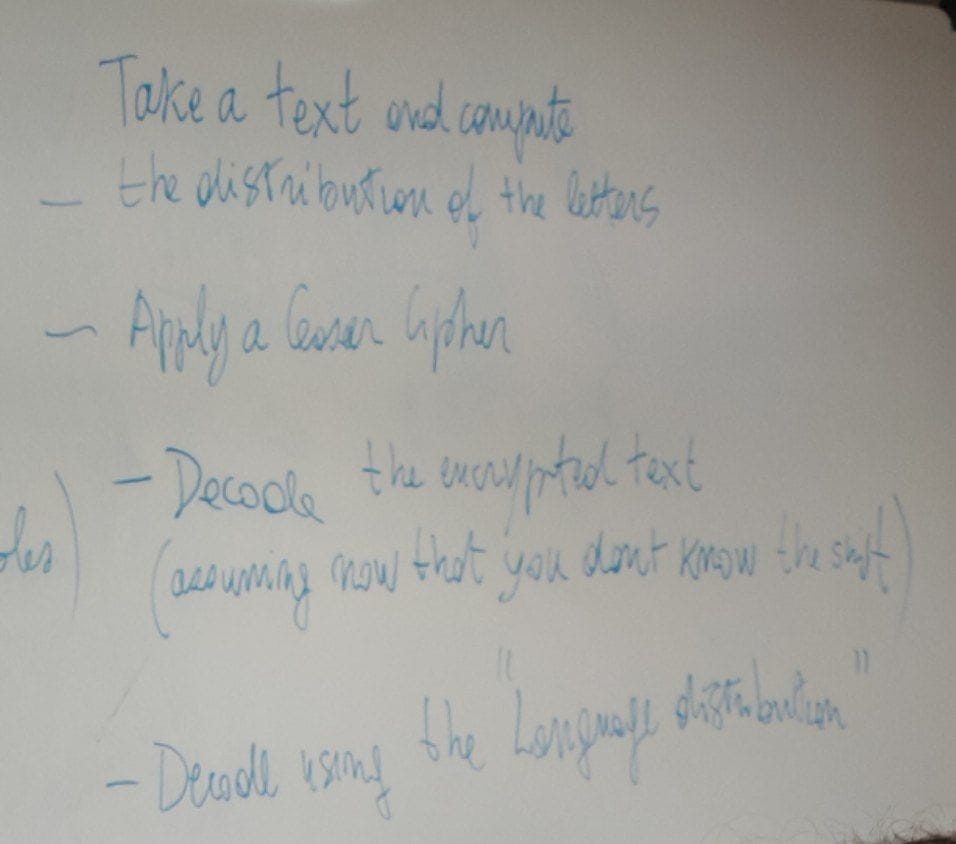 Take a text and compute
— the distribution of the letters
— Apply a Ceaser Cipher
— Decode the encrypted text
(assuming now that you dont know the shift)
— Decode using the "Language distribution"